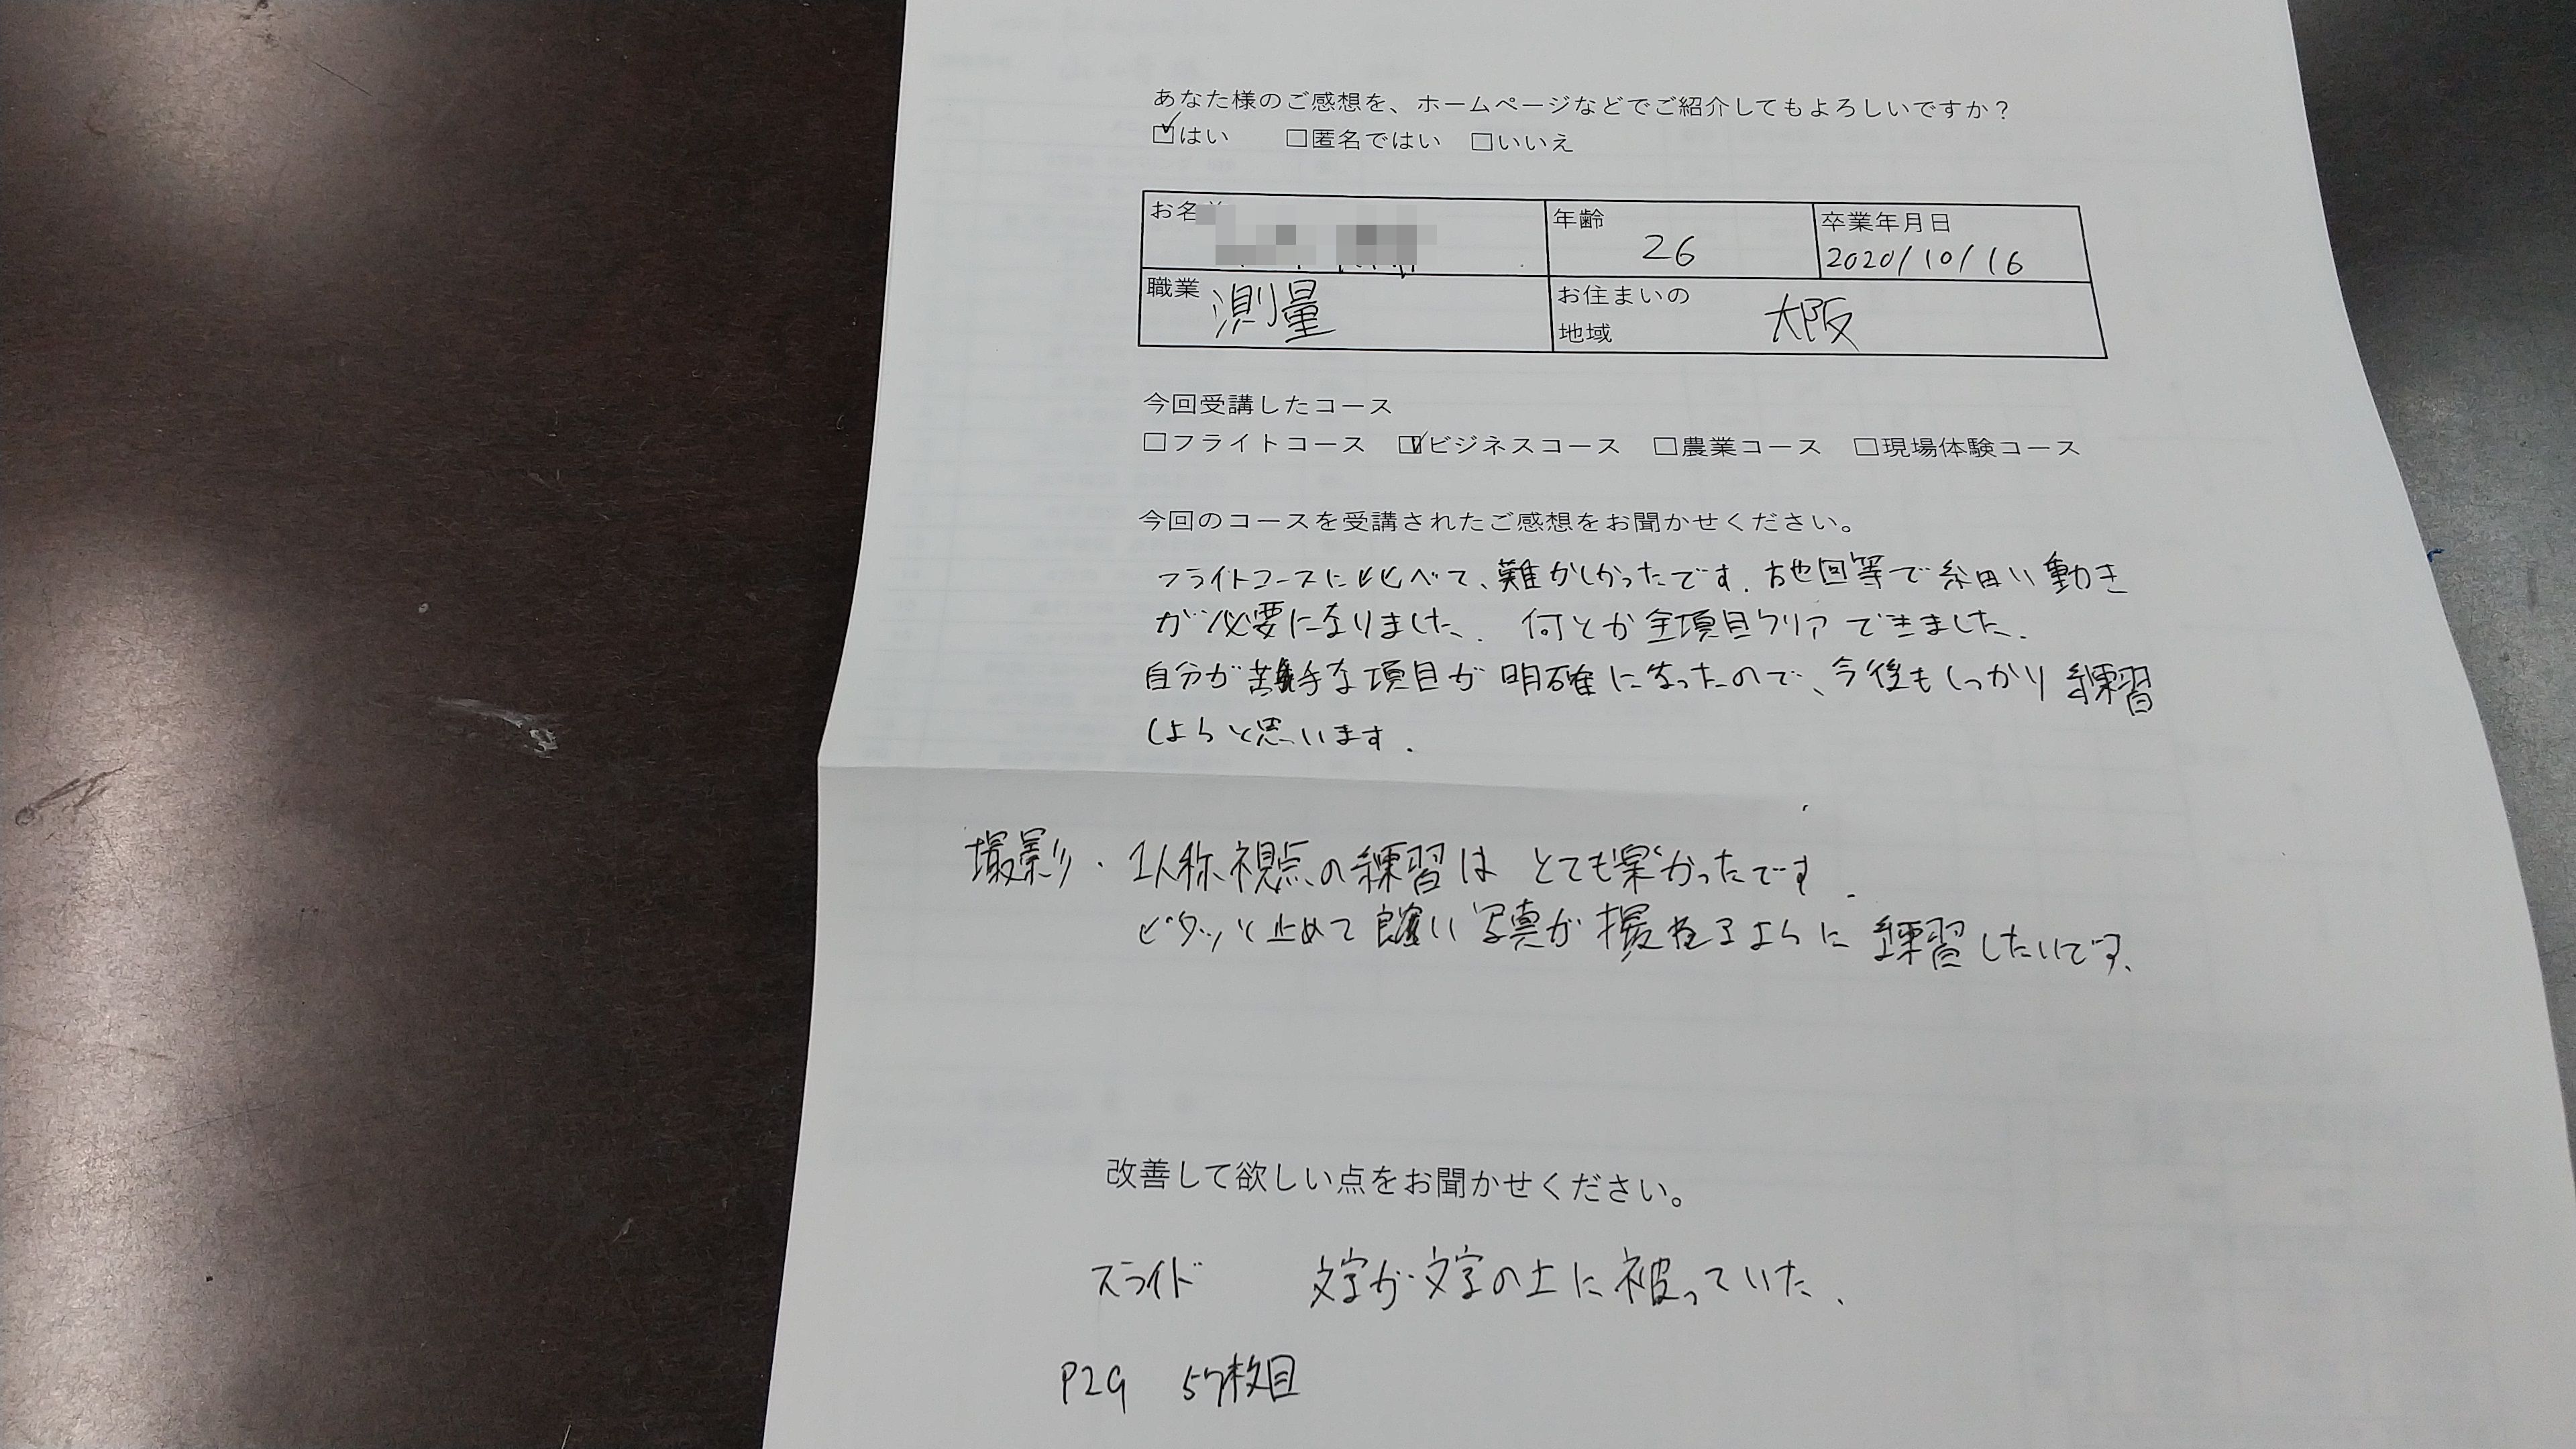 あなた様のご感想を、ホームページなどでご紹介してもよろしいですか？
☑はい □匿名ではい □いいえ
お名
年齢 26
卒業年月日 2020/10/16
職業 測量
お住まいの地域 大阪
今回受講したコース
□フライトコース ☑ビジネスコース □農業コース □現場体験コース
今回のコースを受講されたご感想をお聞かせください。
フライトコースに比べて、難かしかったです. 旋回等で細い動き
が必要になりました. 何とか全項目クリアできました.
自分が苦手な項目が明確になったので、今後もしっかり練習
しようと思います.
撮影・1人称視点の練習はとても楽かったです.
ピタッと止めて良い写真が撮れるように練習したいです.
改善して欲しい点をお聞かせください。
スライド 文字が文字の上に被っていた.
P29 57枚目